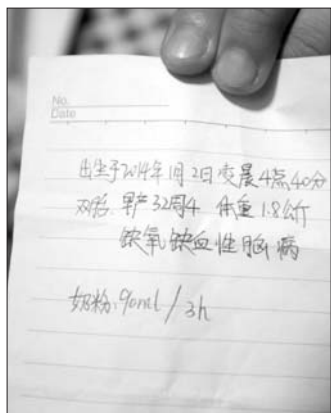 No.
Date
出生于2014年1月2日凌晨4点40分
双胎.早产32周4 体重1.8公斤
缺氧缺血性脑病
奶粉:90ml/3h